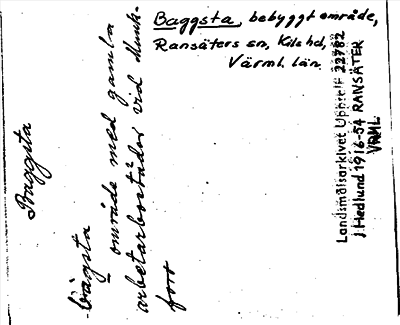 Baggsta, bebyggt område,
Ransäters sn, Kils hd,
Värml. län.
Baggsta
område med gamla
arbetarbostäder vid Munk-
fors
Landsmålsarkivet Uppsala 22782
J. Hedlund 1916-54 RANSÄTER
VRML.